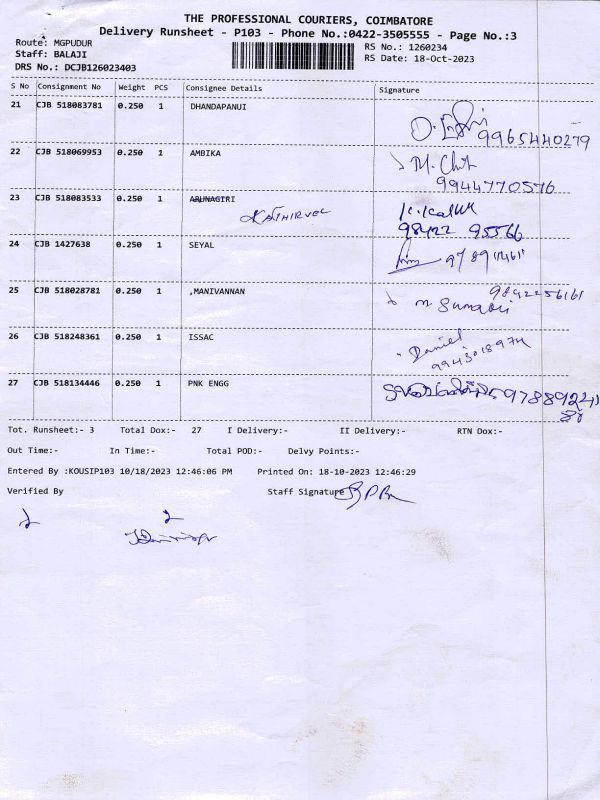 THE PROFESSIONAL COURIERS, COIMBATORE
Delivery Runsheet - P103 - Phone No.:0422-3505555 - Page No.:3
Route: MGPUDUR
RS No.: 1260234
Staff: BALAJI
RS Date: 18-Oct-2023
DRS No.: DCJB126023403
S No Consignment No Weight PCS Consignee Details Signature
21 CJB 518083781 0.250 1 DHANDAPANUI
9965440279
22 CJB 518069953 0.250 1 AMBIKA
9944770576
23 CJB 518083533 0.250 1 ARUNAGIRI
KATHIRVEL
98422 95566
24 CJB 1427638 0.250 1 SEYAL
25 CJB 518028781 0.250 1 ,MANIVANNAN
9842256161
26 CJB 518248361 0.250 1 ISSAC
Daniel
27 CJB 518134446 0.250 1 PNK ENGG
Tot. Runsheet:- 3 Total Dox:- 27 I Delivery:- II Delivery:- RTN Dox:-
Out Time:- In Time:- Total POD:- Delvy Points:-
Entered By :KOUSIP103 10/18/2023 12:46:06 PM Printed On: 18-10-2023 12:46:29
Verified By Staff Signature